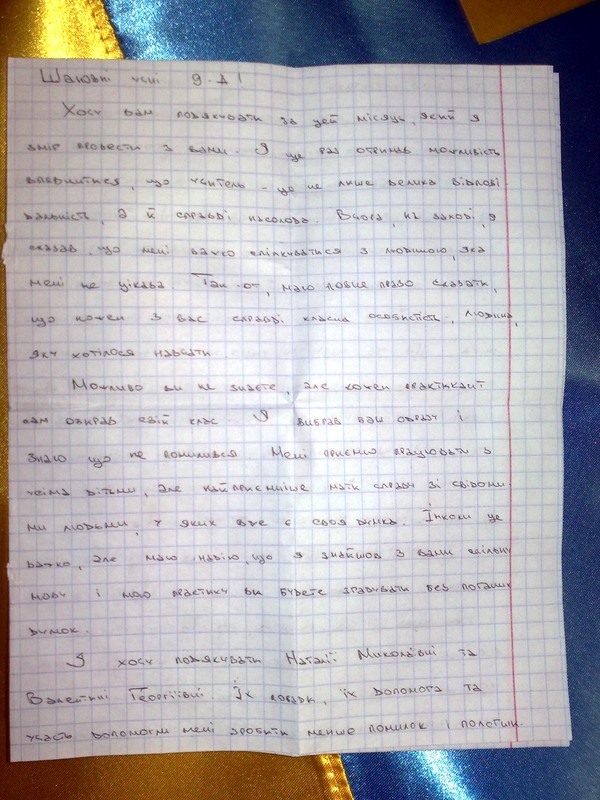 Шановні учні 9-А!
Хочу вам подякувати за цей місяць, який я
зміг провести з вами. Я ще раз отримав можливість
впевнитися, що учитель - це не лише велика відпові-
дальність, а й справді насолода. Вчора, на заході, я
сказав, що мені важко спілкуватися з людиною, яка
мені не цікава. Так-от, маю повне право сказати,
що кожен з вас справді класна особистість, людина,
яку хотілося навчати
Можливо ви не знаєте, але кожен практикант
сам обирав свій клас. Я вибрав ваш одразу і
знаю що не помилився Мені приємно працювати з
усіма дітьми, але найприємніше мати справу зі свідоми-
ми людьми, у яких вже є своя думка. Інколи це
важко, але маю надію, що я знайшов з вами спільну
мову і мою практику ви будете згадувати без поганих
думок.
Я хочу подякувати Наталії Миколаївні та
Валентині Георгіївні. Їх поради, їх допомога та
участь допомогли мені зробити менше помилок і полегши-